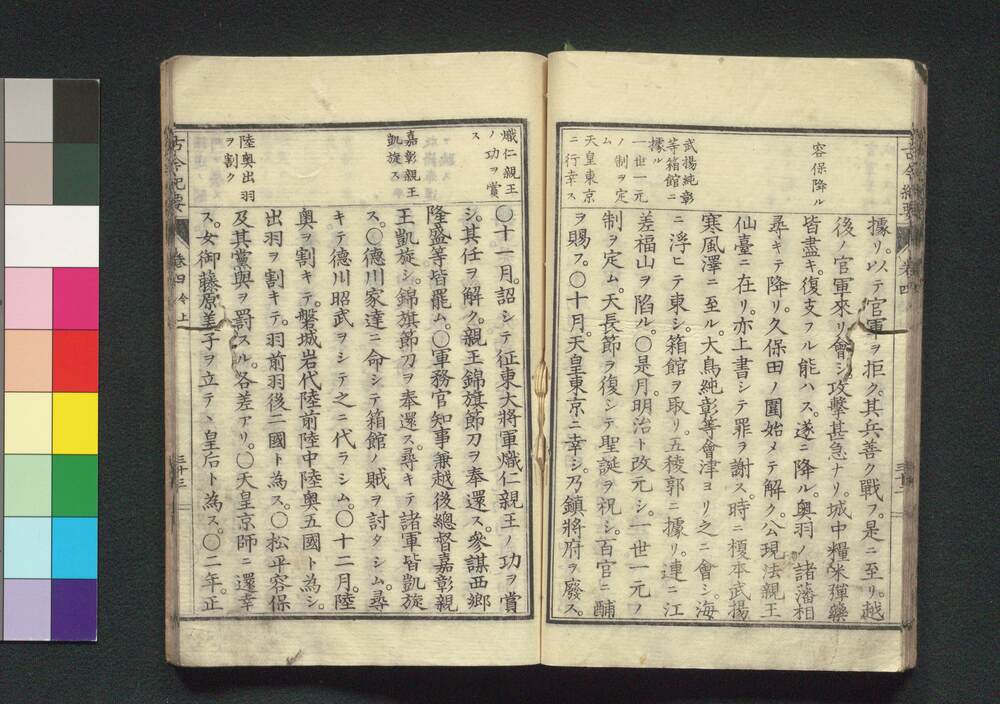 容保降ル
武揚純彰
等箱館ニ
據ル
一世一元
ノ制ヲ定
ム
天皇東京
ニ行幸ス
據リ。以テ官軍ヲ拒ク。其兵善ク戰フ。是ニ至リ。越
後ノ官軍來リ會シ攻擊甚急ナリ。城中糧米彈藥
皆盡キ。復支フル能ハス。遂ニ降ル。奥羽ノ諸藩相
尋キテ降リ。久保田ノ圍始メテ解ク。公現法親王
仙臺ニ在リ。亦上書シテ罪ヲ謝ス。時ニ榎本武揚
寒風澤ニ至ル。大鳥純彰等會津ヨリ之ニ會シ。海
ニ浮ヒテ東シ。箱館ヲ取リ。五稜郭ニ據リ。連ニ江
差福山ヲ陷ル。〇是月。明治ト改元シ。一世一元ノ
制ヲ定ム。天長節ヲ復シテ聖誕ヲ祝シ。百官ニ酺
ヲ賜フ。〇十月。天皇東京ニ幸シ。乃鎮將府ヲ廢ス。
卷四
三十二
熾仁親王
ノ功ヲ賞
ス
嘉彰親王
凱旋ス
陸奥出羽
ヲ割ク
〇十一月。詔シテ征東大將軍熾仁親王ノ功ヲ賞
シ。其任ヲ解ク。親王錦旗節刀ヲ奉還ス。參謀西鄉
隆盛等皆罷ム。〇軍務官知事兼越後總督嘉彰親
王凱旋シ。錦旗節刀ヲ奉還ス。尋キテ諸軍皆凱旋
ス。〇德川家達ニ命シテ箱館ノ賊ヲ討タシム。尋
キテ德川昭武ヲシテ之ニ代ラシム。〇十二月。陸
奥ヲ割キテ。磐城岩代陸前陸中陸奥五國ト為シ。
出羽ヲ割キテ。羽前羽後二國ト為ス。〇松平容保
及其黨與ヲ罰スル。各差アリ。〇天皇京師ニ還幸
ス。女御藤原美子ヲ立テヽ皇后ト為ス。〇二年。正
古今紀要
卷四
今上
三十三